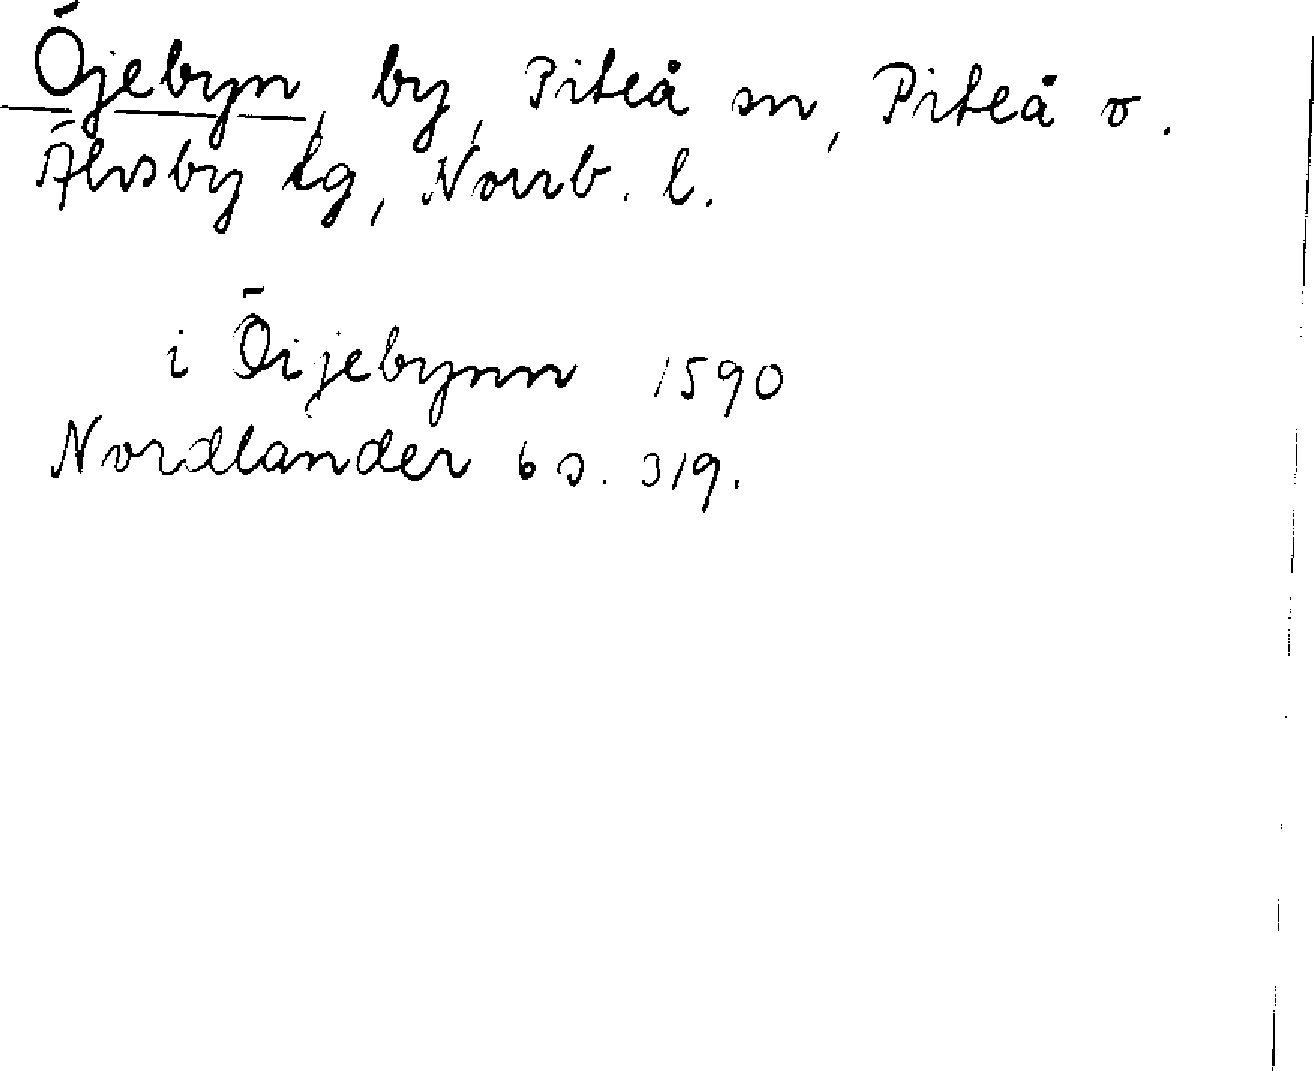 Öjebyn, by, Piteå sn, Piteå o.
Älvsby tg, Norrb. l.
i Öijebynn 1590
Nordlander 6 s. 319.